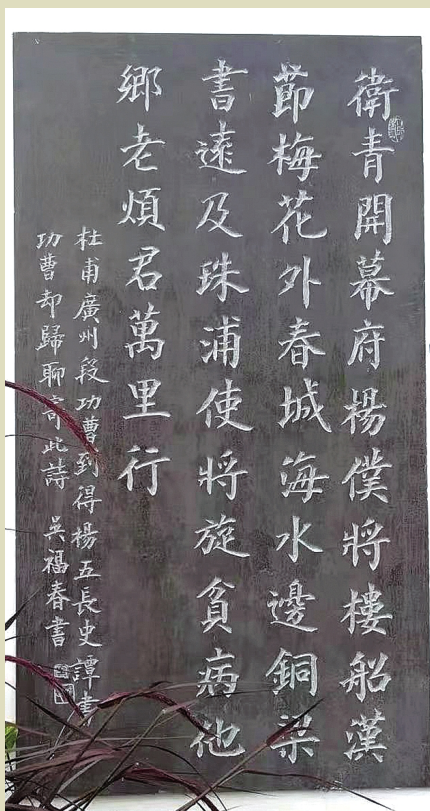 衛青開幕府楊僕將樓船漢
節梅花外春城海水邊銅梁
書遠及珠浦使將旋貧病他
鄉老煩君萬里行
杜甫廣州段功曹到得楊五長史譚書
功曹却歸聊寄此詩 吳福春書